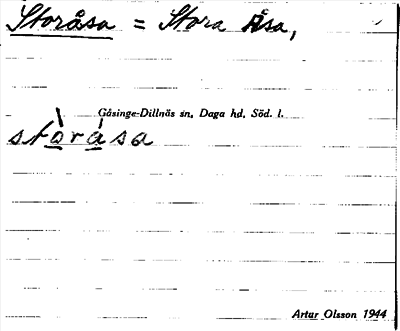 Storåsa = Stora Åsa,
Gåsinge-Dillnäs sn, Daga hd, Söd. l.
stò̲rá̲sa
Artur Olsson 1944